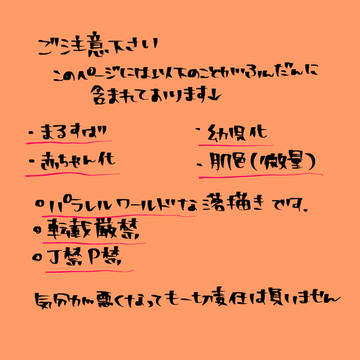 ご注意下さい
このページには↓以下のことがふんだんに
含まれております↓
・まろすば
・幼児化
・赤ちゃん化
・肌色(微量)
○パラレルワールドな落描きです。
○転載厳禁
○J禁P禁
気分が悪くなっても一切責任は負いません